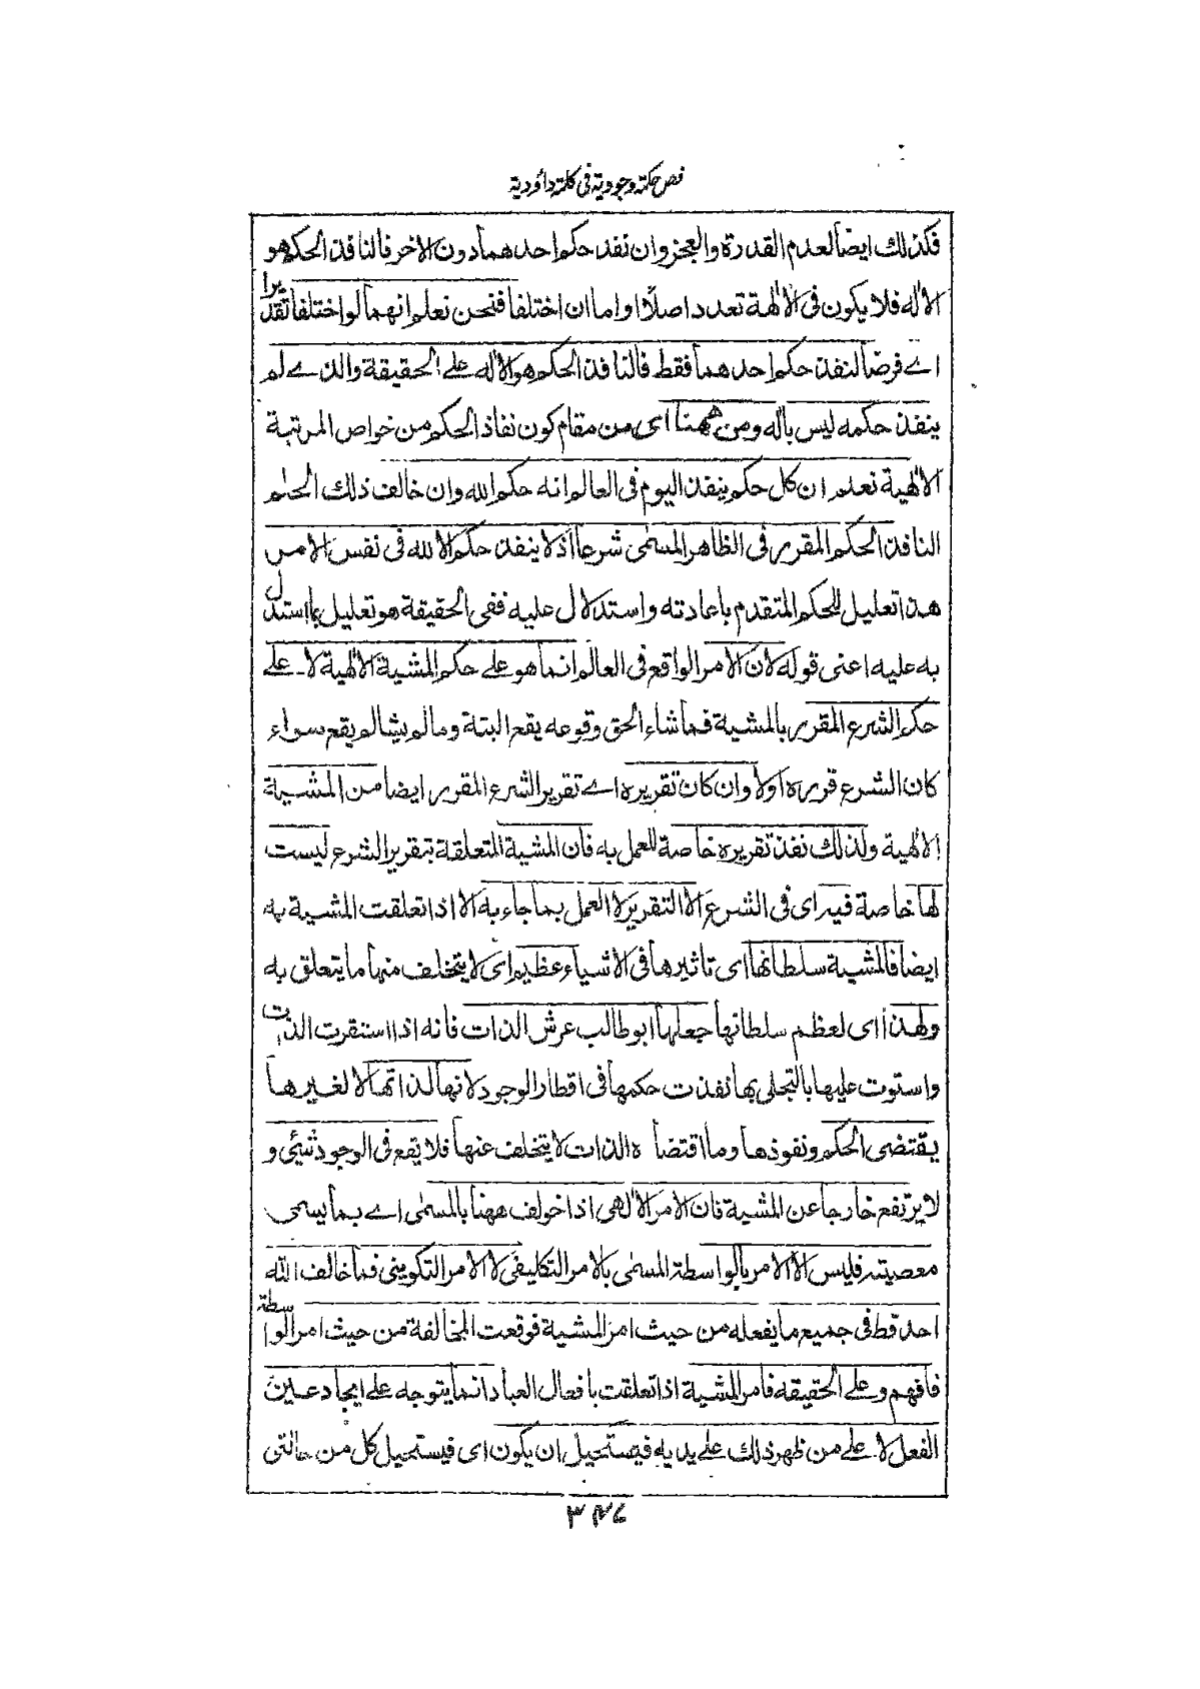 فص حكمة وجودية في كلمة داؤدية
فكذلك ايضا لعدم القدرة والعجز وان نفذ حكم احدهما دون الاخر فالنافذ الحكم هو
الاله فلا يكون في الالهة تعدد اصلا واما ان اختلفا فنحن نعلم انهما لو اختلفا تقديرا
اے فرضا لنفذ حكم احدهما فقط فالنافذ الحكم هو الاله علے الحقيقة والذے لم
ينفذ حكمه ليس باله ومن ههنا اى من مقام كون نفاذ الحكم من خواص المرتبة
الالهية نعلم ان كل حكم ينفذ اليوم فى العالم انه حكم الله وان خالف ذلك الحكم
النافذ الحكم المقرر فى الظاهر المسمى شرعا اذ لا ينفذ حكم الا لله فى نفس الامر
هذا تعليل للحكم المتقدم باعادته واستدلال عليه ففى الحقيقة هو تعليل بما استدل
به عليه اعنى قوله لان الامر الواقع فى العالم انما هو على حكم المشية الالهية لا علے
حكم الشرع المقرر بالمشية فما شاء الحق وقوعه يقع البتة وما لم يشا لم يقع سواء
كان الشرع قرره اولا وان كان تقريره اے تقرير الشرع المقرر ايضا من المشية
الالهية ولذلك نفذ تقريره خاصة للعمل به فان المشية المتعلقة بتقرير الشرع ليست
لها خاصة فيه اى فى الشرع الا التقرير لا العمل بما جاء به الا اذا تعلقت المشية به
ايضا فالمشية سلطانها اى تاثيرها فى الاشياء عظيم اى لا يتخلف منها ما يتعلق به
ولهذا اى لعظم سلطانها جعلها ابو طالب عرش الذات فانه اذا استقرت الذات
واستوت عليها بالتجلى بها نفذت حكمها فى اقطار الوجود لانها لذاتها لا لغيرها
يقتضى الحكم ونفوذها وما اقتضا ه الذات لا يتخلف عنها فلا يقع فى الوجود شيئى و
لا يرتفع خارجا عن المشية فان الامر الالهى اذا خولف ههنا بالمسمى اے بما يسمى
معصيته فليس الا الامر بالواسطة المسمى بالامر التكليفى لا الامر التكوينى فما خالف الله
احد قط فى جميع ما يفعله من حيث امر المشية فوقعت المخالفة من حيث امر الواسطة
فافهم وعلے الحقيقه فامر المشية اذا تعلقت بافعال العباد انما يتوجه علے ايجاد عين
الفعل لا علے من ظهر ذلك علے يديه فيستحيل ان يكون اى فيستحيل كل من حالتى